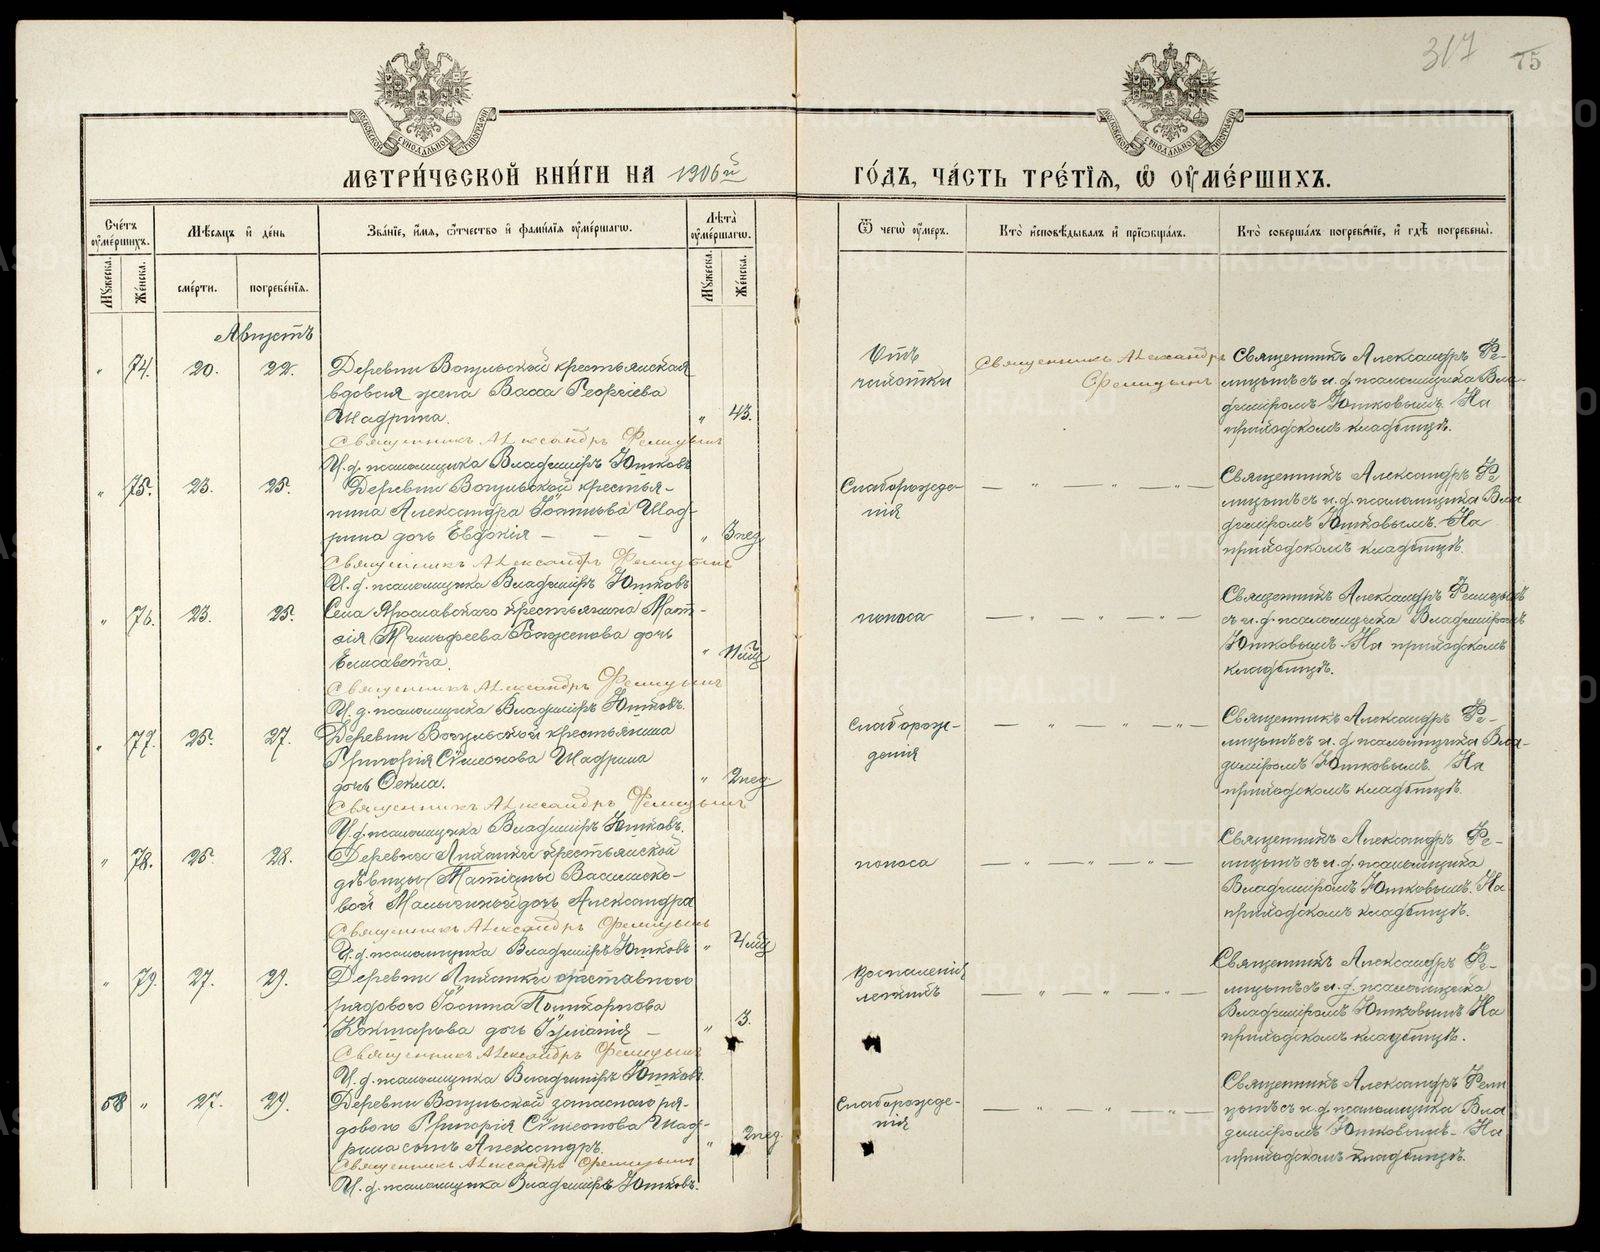 317 75
МЕТРИ́ЧЕСКОЙ КНИ́ГИ НА 1906й ГО́ДЪ, ЧА́СТЬ ТРЕ́ТІѦ, Ѿ ОУМЕ́РШИХЪ.
Сче́тъ оуме́ршихъ.
Мꙋжеска.
Же́нска.
Мѣсѧцъ и де́нь
сме́рти.
погребе́нїѧ.
Зва́нїе, и́мѧ, о́тчество и фами́лїѧ оуме́ршагѡ.
Лѣта̀ оуме́ршагѡ.
Мꙋжеска.
Же́нска.
Ѿ чегѡ̀ оу́меръ.
Кто̀ исповѣ́дывалъ и прїѡбща́лъ.
Кто̀ соверша́лъ погребе́нїе, и гдѣ̀ погребены̀.
Августъ
" 74. 20. 22.
Деревни Вогульской крестьянская
вдовая жена Васса Георгіева
Шадрина. " 43.
Священникъ Александръ Фелицынъ
И. д. псаломщика Владиміръ Ютковъ
Отъ
чахотки
Священникъ Александръ
Фелицынъ
Священникъ Александръ Фе-
лицынъ съ и. д. псаломщика Вла-
диміромъ Ютковымъ. На
приходскомъ кладбищѣ.
" 75. 23. 25.
Деревни Вогульской крестья-
нина Александра Іоаннова Шад-
рина дочь Евдокія — — — " 3 нед.
Священникъ Александръ Фелицынъ
И. д. псаломщика Владиміръ Ютковъ
Слаборожде-
нія
— " — " — " —
Священникъ Александръ Фе-
лицынъ съ и. д. псаломщика Вла-
диміромъ Ютковымъ. На
приходскомъ кладбищѣ.
" 76. 23. 25.
Села Ярославскаго крестьянина Мат-
ѳія Тимофеева дочь
Елисавета. "
Священникъ Александръ Фелицынъ
И. д. псаломщика Владиміръ Ютковъ.
поноса
— " — " — " —
Священникъ Александръ Фелицынъ
съ и. д. псаломщика Владиміромъ
Ютковымъ. На приходскомъ
кладбищѣ.
" 77. 25. 27.
Деревни Вогульской крестьянина
Григорія Сѵмеонова Шадрина
дочь Ѳекла. " 2 нед.
Священникъ Александръ Фелицынъ
И. д. псаломщика Владиміръ Ютковъ.
Слаборож-
денія
— " — " — " —
Священникъ Александръ Фе-
лицынъ съ и. д. псаломщика Вла-
диміромъ Ютковымъ. На
приходскомъ кладбищѣ.
" 78. 25. 28.
Деревни крестьянской
дѣвицы Матроны
дочь Александра
Священникъ Александръ Фелицынъ
И. д. псаломщика Владиміръ Ютковъ " 4 мѣс.
поноса
— " — " — " —
Священникъ Александръ Фе-
лицынъ съ и. д. псаломщика
Владиміромъ Ютковымъ. На
приходскомъ кладбищѣ.
" 79. 27. 29.
Деревни отставного
рядового Іоанна Поликарпова
дочь — " 3.
Священникъ Александръ Фелицынъ
И. д. псаломщика Владиміръ Ютковъ.
Воспаленія
легкихъ
— " — " — " —
Священникъ Александръ Фе-
лицынъ съ и. д. псаломщика
Владиміромъ Ютковымъ На
приходскомъ кладбищѣ.
58 " 27. 29.
Деревни Вогульской запаснаго ря-
дового Григорія Сѵмеонова Шад-
рина сынъ Александръ. " 2 нед.
Священникъ Александръ Фелицынъ
И. д. псаломщика Владиміръ Ютковъ.
Слаборожде-
нія
— " — " — " —
Священникъ Александръ Фели
цынъ съ и. д. псаломщика Вла
диміромъ Ютковымъ. На
приходскомъ кладбищѣ.